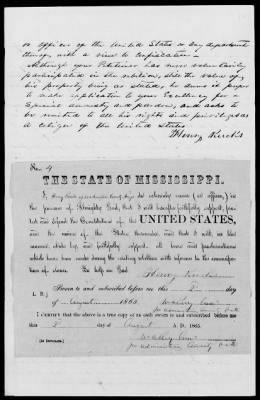 or officer of the United States or any department
thereof, with a view to confiscation —
Although your Petitioner has never voluntarily
participated in the rebellion, still the value of
his property being as stated, he deems it proper
to make application to your Excellency for a
Special amnesty and pardon, and asks to
be restored to all his rights and privileges as
a citizen of the United States
Henry
No. 4
THE STATE OF MISSISSIPPI.
I, do solemnly swear, (or affirm,) in
the presence of Almighty God, that I will henceforth faithfully support, pro-
tect and defend the Constitution of the UNITED STATES,
and the union of the States thereunder, and that I will, in like
manner, abide by, and faithfully support, all laws and proclamations
which have been made during the existing rebellion with reference to the emancipa-
tion of slaves. So help me God.
Henry
Sworn to and subscribed before me this 8 day
of August 1865.
I CERTIFY that the above is a true copy of an oath sworn to and subscribed before me
this 8 day of August A. D. 1865.